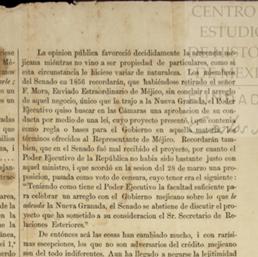 CENTRO
ESTUDIO
La opinion pública favoreció decididamente la acreencia me-
jicana mientras no vino a ser propiedad de particulares, como si
esta circunstancia le hiciese variar de naturaleza. Los miembros
del Senado en 1856 recordarán, que habiéndose retirado el señor
F. Mora, Enviado Estraordinario de Méjico, sin concluir el arreglo
de aquel negocio, único que lo trajo a la Nueva Granada, el Poder
Ejecutivo quiso buscar en las Cámaras una aprobacion de su con-
ducta por medio de una lei, cuyo proyecto presentó, i que contenia
como regla o bases para el Gobierno en aquella materia los
términos ofrecidos al Representante de Méjico. Recordarán tam-
bien, que en el Senado fué mal recibido el proyecto, por cuanto el
Poder Ejecutivo de la República no habia sido bastante justo en
aquel ministro, i que acordó en la sesion del 28 de marzo una pro-
posicion, pasada como voto de censura, cuyo tenor era el siguiente:
"Teniendo como tiene el Poder Ejecutivo la facultad suficiente pa-
ra celebrar un arreglo con el Gobierno mejicano sobre lo que le
adeuda la Nueva Granada, el Senado se abstiene de discutir el pro-
yecto que ha sometido a su consideracion el Sr. Secretario de Re-
laciones Esteriores."
De entónces acá las cosas han cambiado mucho, i con rarísi-
mas escepciones, los que no son adversarios del crédito mejicano
son del todo indiferentes. Aun ha llegado a negarse la lejitimidad